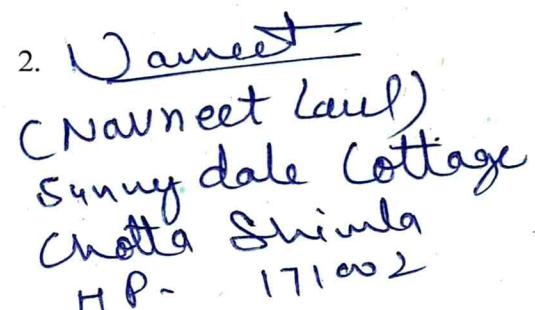 2. Navneet
(Navneet Laul)
Sunny dale Cottage
Chotta Shimla
HP- 171002